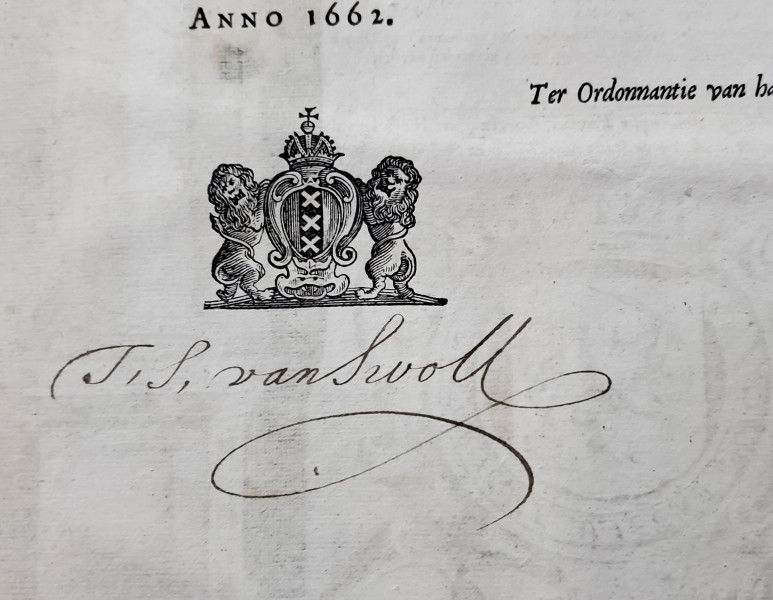 ANNO 1662.
Ter Ordonnantie van
J, S, van Swoll